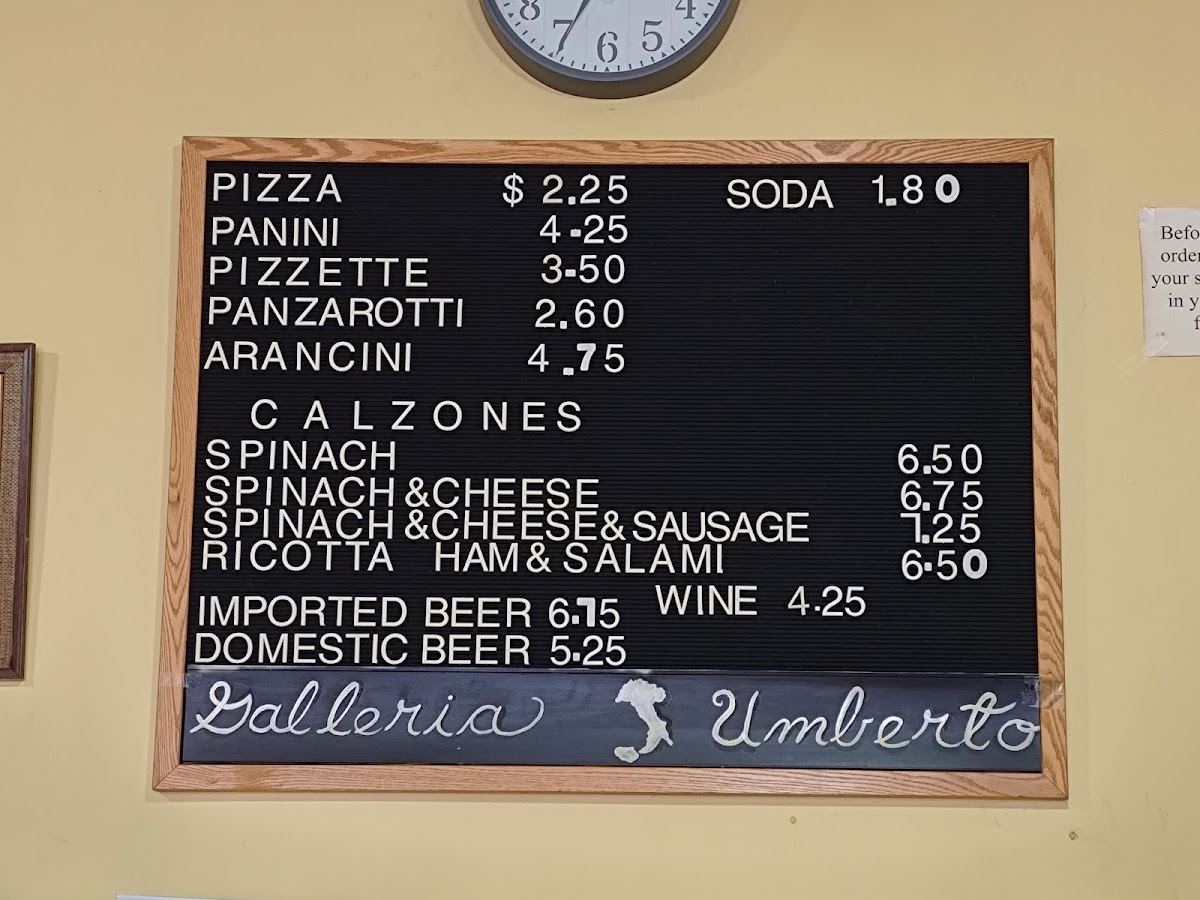 8 7 6 5 4
PIZZA $ 2.25 SODA 1.80
PANINI 4.25
PIZZETTE 3.50
PANZAROTTI 2.60
ARANCINI 4.75
CALZONES
SPINACH 6.50
SPINACH &CHEESE 6.75
SPINACH &CHEESE&SAUSAGE 7.25
RICOTTA HAM& SALAMI 6.50
WINE 4.25
IMPORTED BEER 6.75
DOMESTIC BEER 5.25
Galleria Umberto
your
in